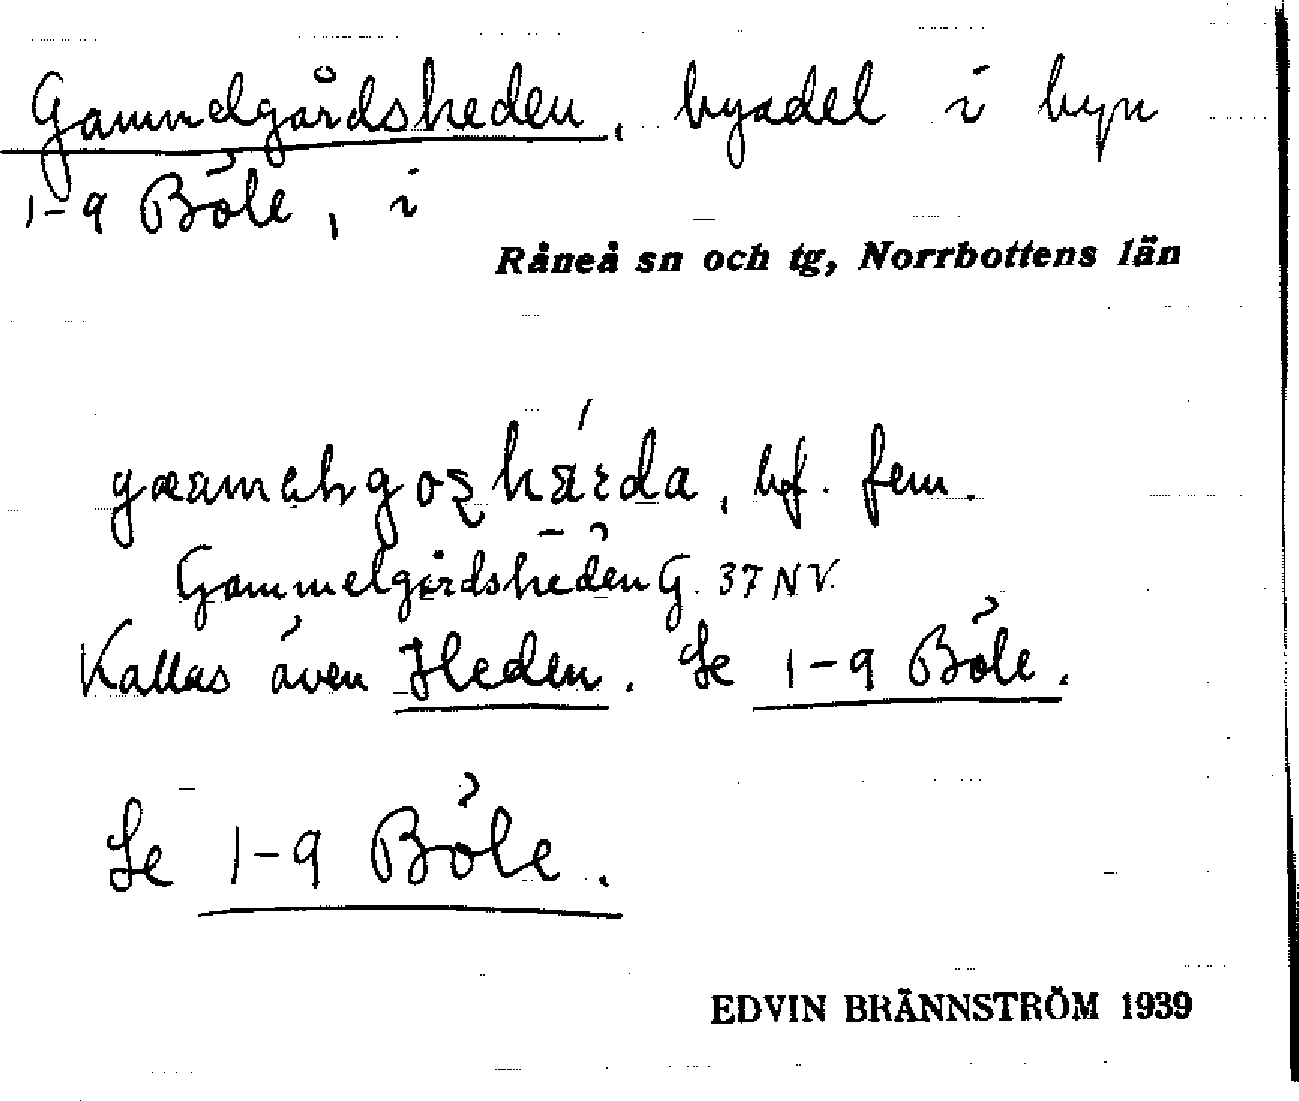 Gammelgårdsheden, byadel i byn
1-9 Böle, i
Råneå sn och tg, Norrbottens län
bf. fem.
Gammelgårdsheden G. 37 NV.
Kallas även Heden. Se 1-9 Böle.
Se 1-9 Böle.
EDVIN BRÄNNSTRÖM 1939